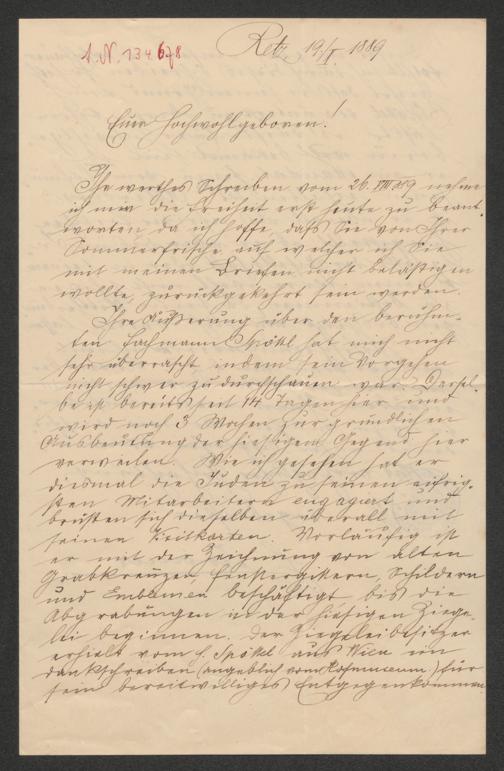 A.N. 134.678
Retz, 19./X 1889
Euer Hochwohlgeboren!
Ihr werthes Schreiben vom 26. VIII 889 nehme
ich mir die Freiheit erst heute zu beant-
worten da ich hoffe, daß Sie von Ihrer
Sommerfrische auf welcher ich Sie
mit meinen Briefen nicht belästigen
wollte, zurückgekehrt sein werden.
Ihre Äußerung über den berühm-
ten Fachmann Spöttl hat mich nicht
sehr überrascht indem sein Vorgehen
nicht schwer zu durchschauen war. Dersel-
be ist bereits seit 14 Tagen hier und
wird noch 3 Wochen zur gründlichen
Ausbeutung der hiesigen Gegend hier
verweilen. Wie ich gesehen hat er
diesmal die Juden zu seinen eifrig-
sten Mitarbeitern engagiert und
brüsten sich dieselben überall mit
seinen Visitkarten. Vorläufig ist
er mit der Zeichnung von alten
Grabkreuzen, Fenstergittern, Schildern
und Emblemen beschäftigt bis die
Abgrabungen in der hiesigen Ziege-
lei beginnen. Der Ziegeleibesitzer
erhielt vom H. Spöttl aus Wien ein
Dankschreiben (angeblich vom Hofmuseum) für
sein bereitwilliges Entgegenkommen